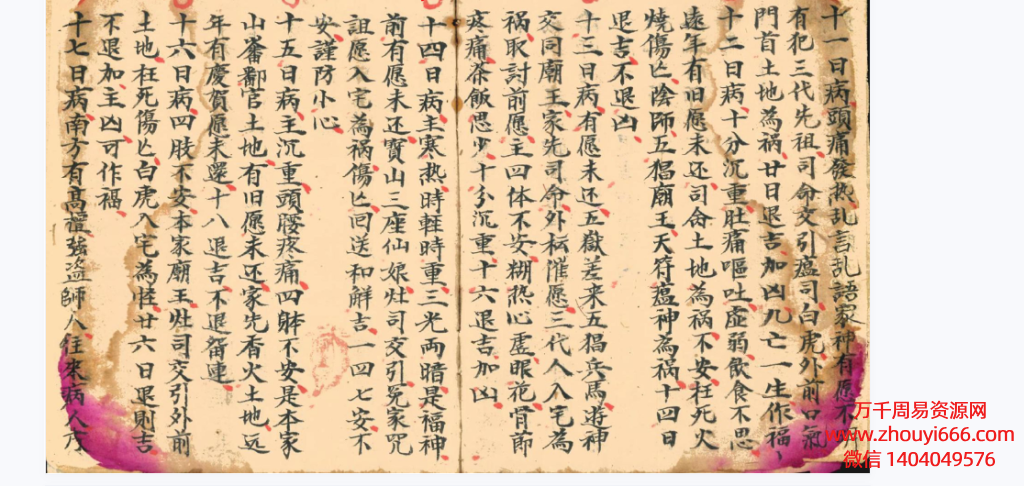 十一日病頭痛發熱乱言乱語家神有愿不
有犯三代先祖司命交引瘟司白虎外前口氣
門首土地為祸廿日退吉加凶九亡一生作福
十二日病十分沉重肚痛嘔吐虛弱飲食不思
遠年有旧愿未还司命土地為祸不安枉死火
燒傷亡陰師五猖廟王天符瘟神為祸十四日
退吉不退凶
十三日病有愿未还五嶽差来五猖兵馬遊神
交同廟王家先司命外坛催愿三代人入宅為
祸取討前愿主四体不安糊热心虛眼花骨節
疼痛茶飯思少十分沉重十六退吉加凶
十四日病主寒热時軽時重三光両暗是福神
前有愿未还寶山三座仙娘灶司交引冤家咒
詛愿入宅為祸傷亡回送和解吉一四七安不
安謹防小心
十五日病主沉重頭腰疼痛四躰不安是本家
山 官土地有旧愿未还家先香火土地远
年有慶賀愿未還十八退吉不退留連
十六日病四肢不安本家廟王灶司交引外前
土地枉死傷亡白虎入宅為怪廿六日退則吉
不退加主凶可作福
十七日病南方有高 強盗師人往來病人
万千周易资源网
www.zhouyi666.com
微信 1404049576